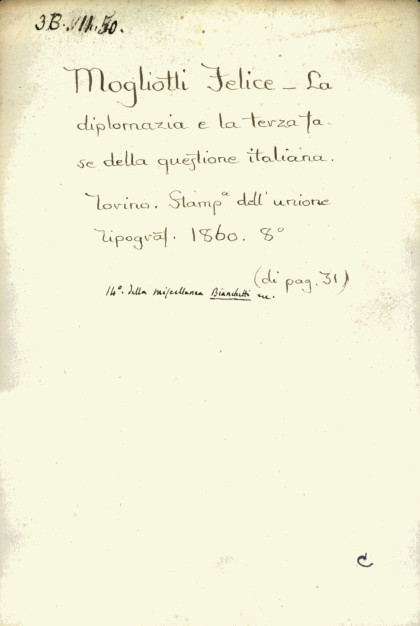 3.B.VII.50.
Mogliotti Felice – La
diplomazia e la terza fa-
se della questione italiana.
Torino. Stampª dell' unione
tipográf. 1860. 8º
(di pag. 31)
14º. della miscellanea Bianchetti
C